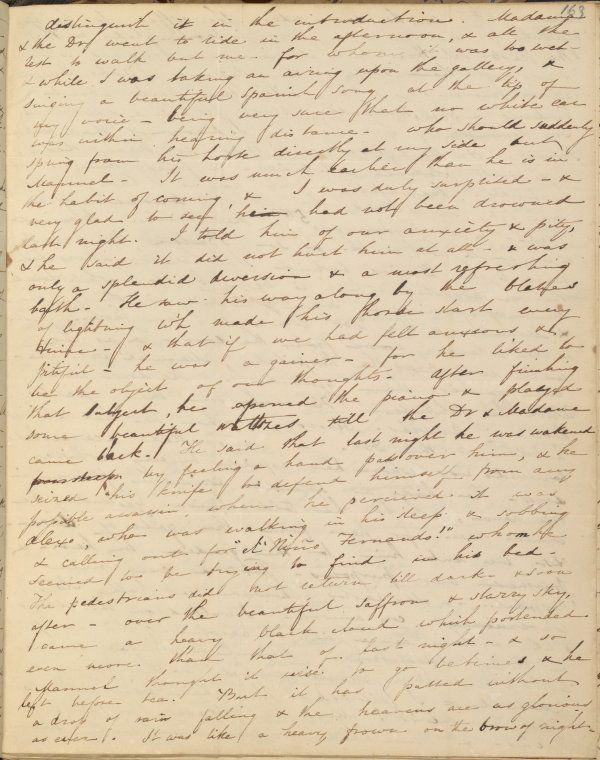 163
distinguish it in the introduction. Madame
& the Dr went to ride in the afternoon, & all the
rest to walk but me - for whom it was too wet -
& while I was taking an airing upon the gallery, &
singing a beautiful Spanish song at the tip of
my voice - being very sure that no white ear
was within hearing distance - who should suddenly
spring from his horse directly at my side but
Manuel - It was much earlier than he is in
the habit of coming, & I was duly surprised - &
very glad to see he had not been drowned
last night. I told him of our anxiety & pity,
& he said it did not hurt him at all - & was
only a splendid diversion & a most refreshing
bath - He saw his way along by the blazes
of lightning wh. made his horse start every
time - & that if we had felt anxious &
pitiful - he was a gainer - for he liked to
be the object of our thoughts. After finishing
that subject, he opened the piano & played
some beautiful waltzes till the Dr & Madame
came back. He said that last night he was wakened
by feeling a hand pass over him, & he
seized his knife to defend himself from any
possible assassin when he perceived it was
Alexo, who was walking in his sleep & sobbing
& calling out for "el Niño Fernando!" whom he
seemed to be trying to find in his bed -
The pedestrians did not return till dark - & soon
after - over the beautiful saffron & starry sky,
came a heavy black cloud which portended
even more than that of last night & so
Manuel thought it wise to go betimes & he
left before tea. But it has passed without
a drop of rain falling & the heavens are as glorious
as ever. It was like a heavy frown on the brow of night -